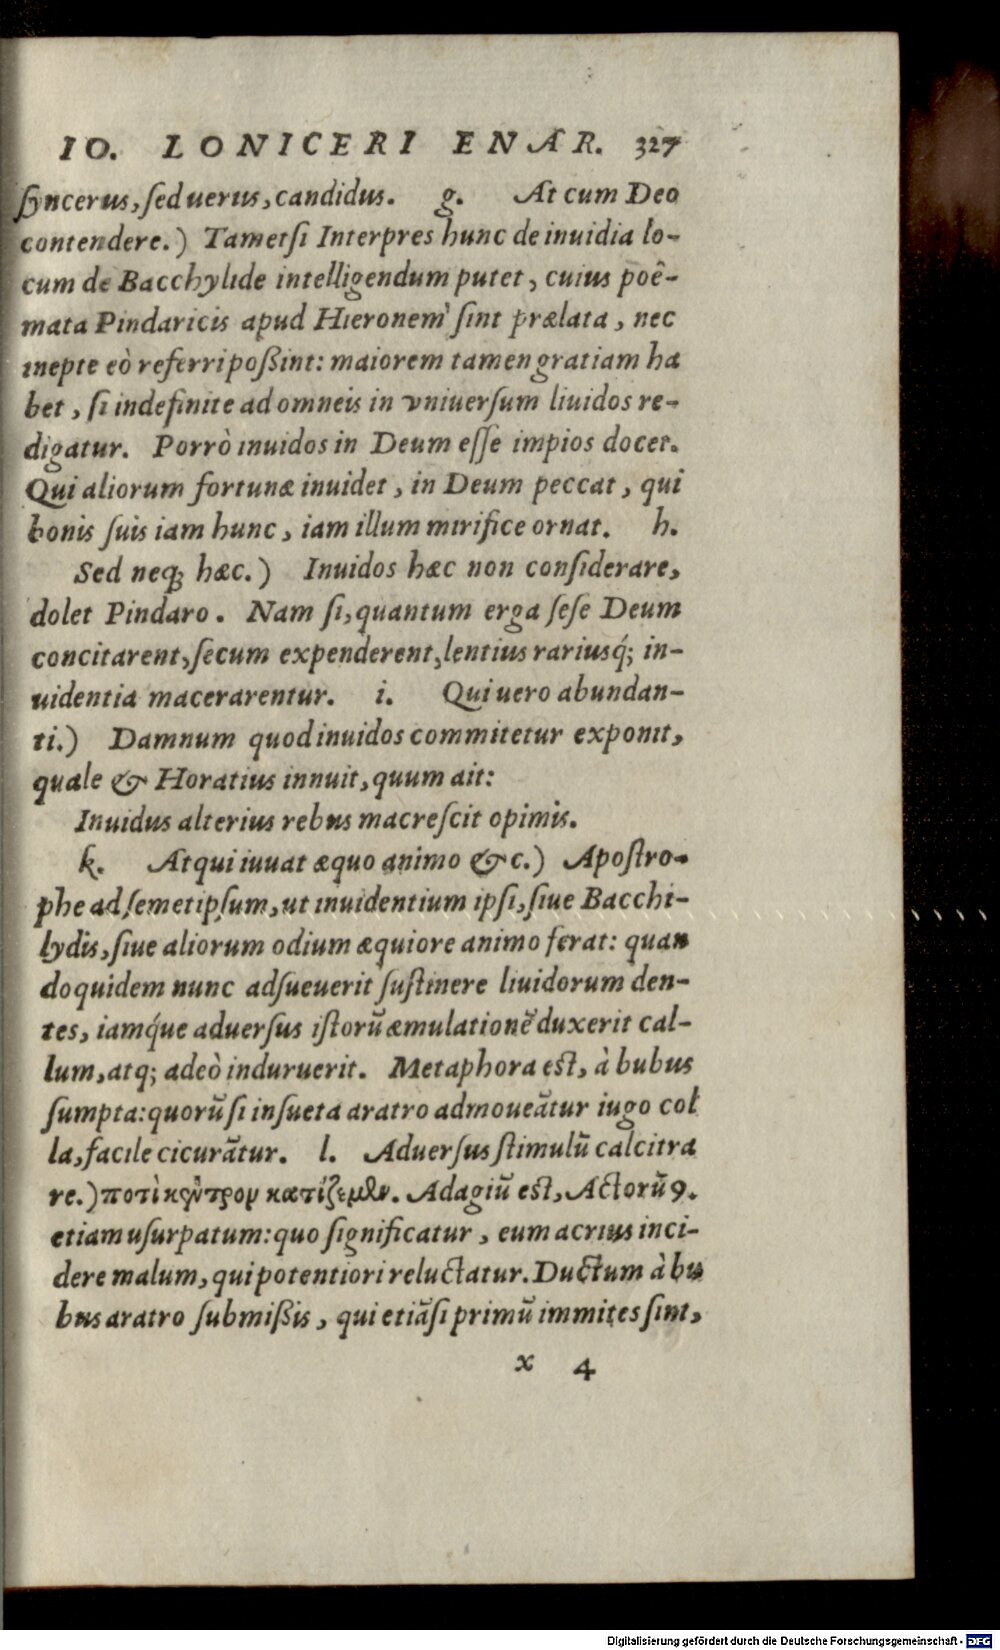 IO. LONICERI ENAR. 327
ſyncerus, ſed uerus, candidus. g. At cum Deo
contendere.) Tametſi Interpres hunc de inuidia lo-
cum de Bacchylide intelligendum putet, cuius poê-
mata Pindaricis apud Hieronem ſint prælata, nec
inepte eò referri poßint: maiorem tamen gratiam ha
bet, ſi indefinite ad omneis in vniuerſum liuidos re-
digatur. Porrò inuidos in Deum eſſe impios docet.
Qui aliorum fortunæ inuidet, in Deum peccat, qui
bonis ſuis iam hunc, iam illum mirifice ornat. h.
Sed neq; hæc.) Inuidos hæc non conſiderare,
dolet Pindaro. Nam ſi, quantum erga ſeſe Deum
concitarent, ſecum expenderent, lentius rariusq́; in-
uidentia macerarentur. i. Qui uero abundan-
ti.) Damnum quod inuidos commitetur exponit,
quale & Horatius innuit, quum ait:
Inuidus alterius rebus macreſcit opimis.
k. Atqui iuuat æquo animo &c.) Apoſtro-
phe ad ſemetipſum, ut inuidentium ipſi, ſiue Bacchi-
lydis, ſiue aliorum odium æquiore animo ferat: quan
doquidem nunc adſueuerit ſuſtinere liuidorum den-
tes, iamq́ue aduerſus iſtorũ æmulationẽ duxerit cal-
lum, atq; adeò induruerit. Metaphora est, à bubus
ſumpta: quorũ ſi inſueta aratro admoueãtur iugo col
la, facile cicurãtur. l. Aduerſus ſtimulũ calcitra
re.) ποτὶ κέντρον κατίζεμεν. Adagiũ est, Actorũ 9.
etiam uſurpatum: quo ſignificatur, eum acrius inci-
dere malum, qui potentiori reluctatur. Ductum à bu
bus aratro ſubmißis, qui etiãſi primũ immites ſint,
x 4
Digitalisierung gefördert durch die Deutsche Forschungsgemeinschaft - DFG